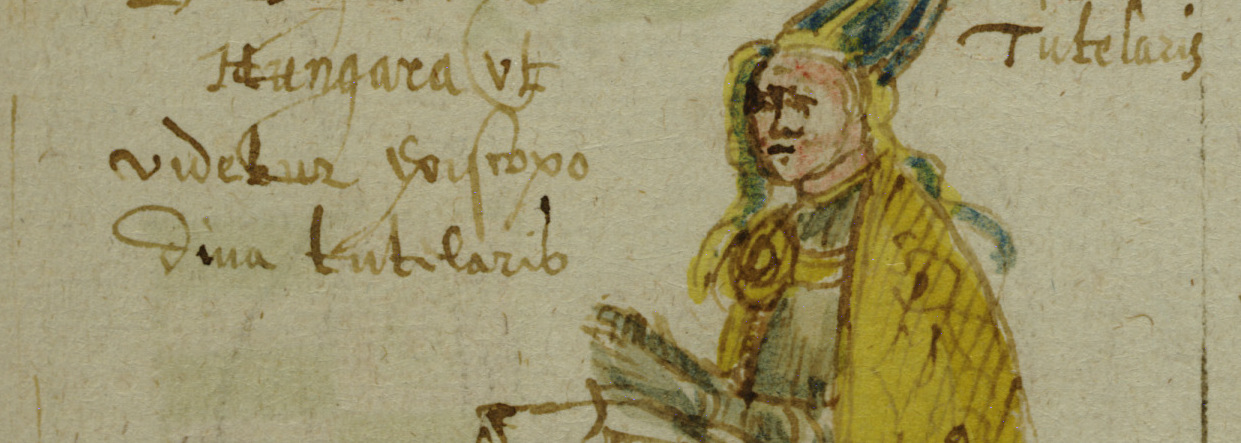 Hungara vt
videtur Episcopo
Diua tutelaris
Tutelaris